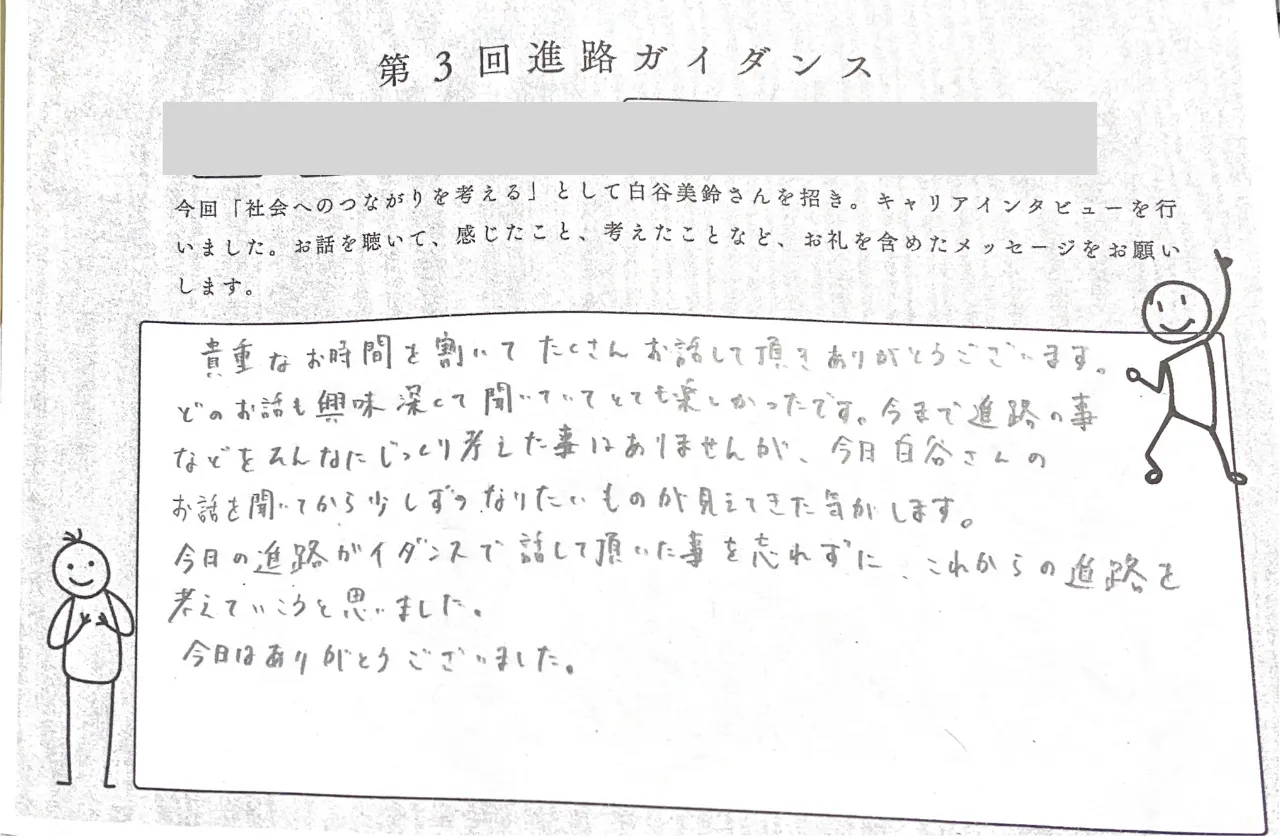 第3回進路ガイダンス
今回「社会へのつながりを考える」として白谷美鈴さんを招き。キャリアインタビューを行
いました。お話を聴いて、感じたこと、考えたことなど、お礼を含めたメッセージをお願い
します。
貴重なお時間を割いてたくさんお話して頂きありがとうございます。
どのお話も興味深くて聞いていてとても楽しかったです。今まで進路の事
などをそんなにじっくり考えた事はありませんが、今日白谷さんの
お話を聞いてから少しずつなりたいものが見えてきた気がします。
今日の進路ガイダンスで話して頂いた事を忘れずに、これからの進路を
考えていこうと思いました。
今日はありがとうございました。